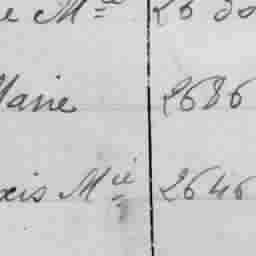 e Mce 26 80
Marie 2686
xis Mié 2646